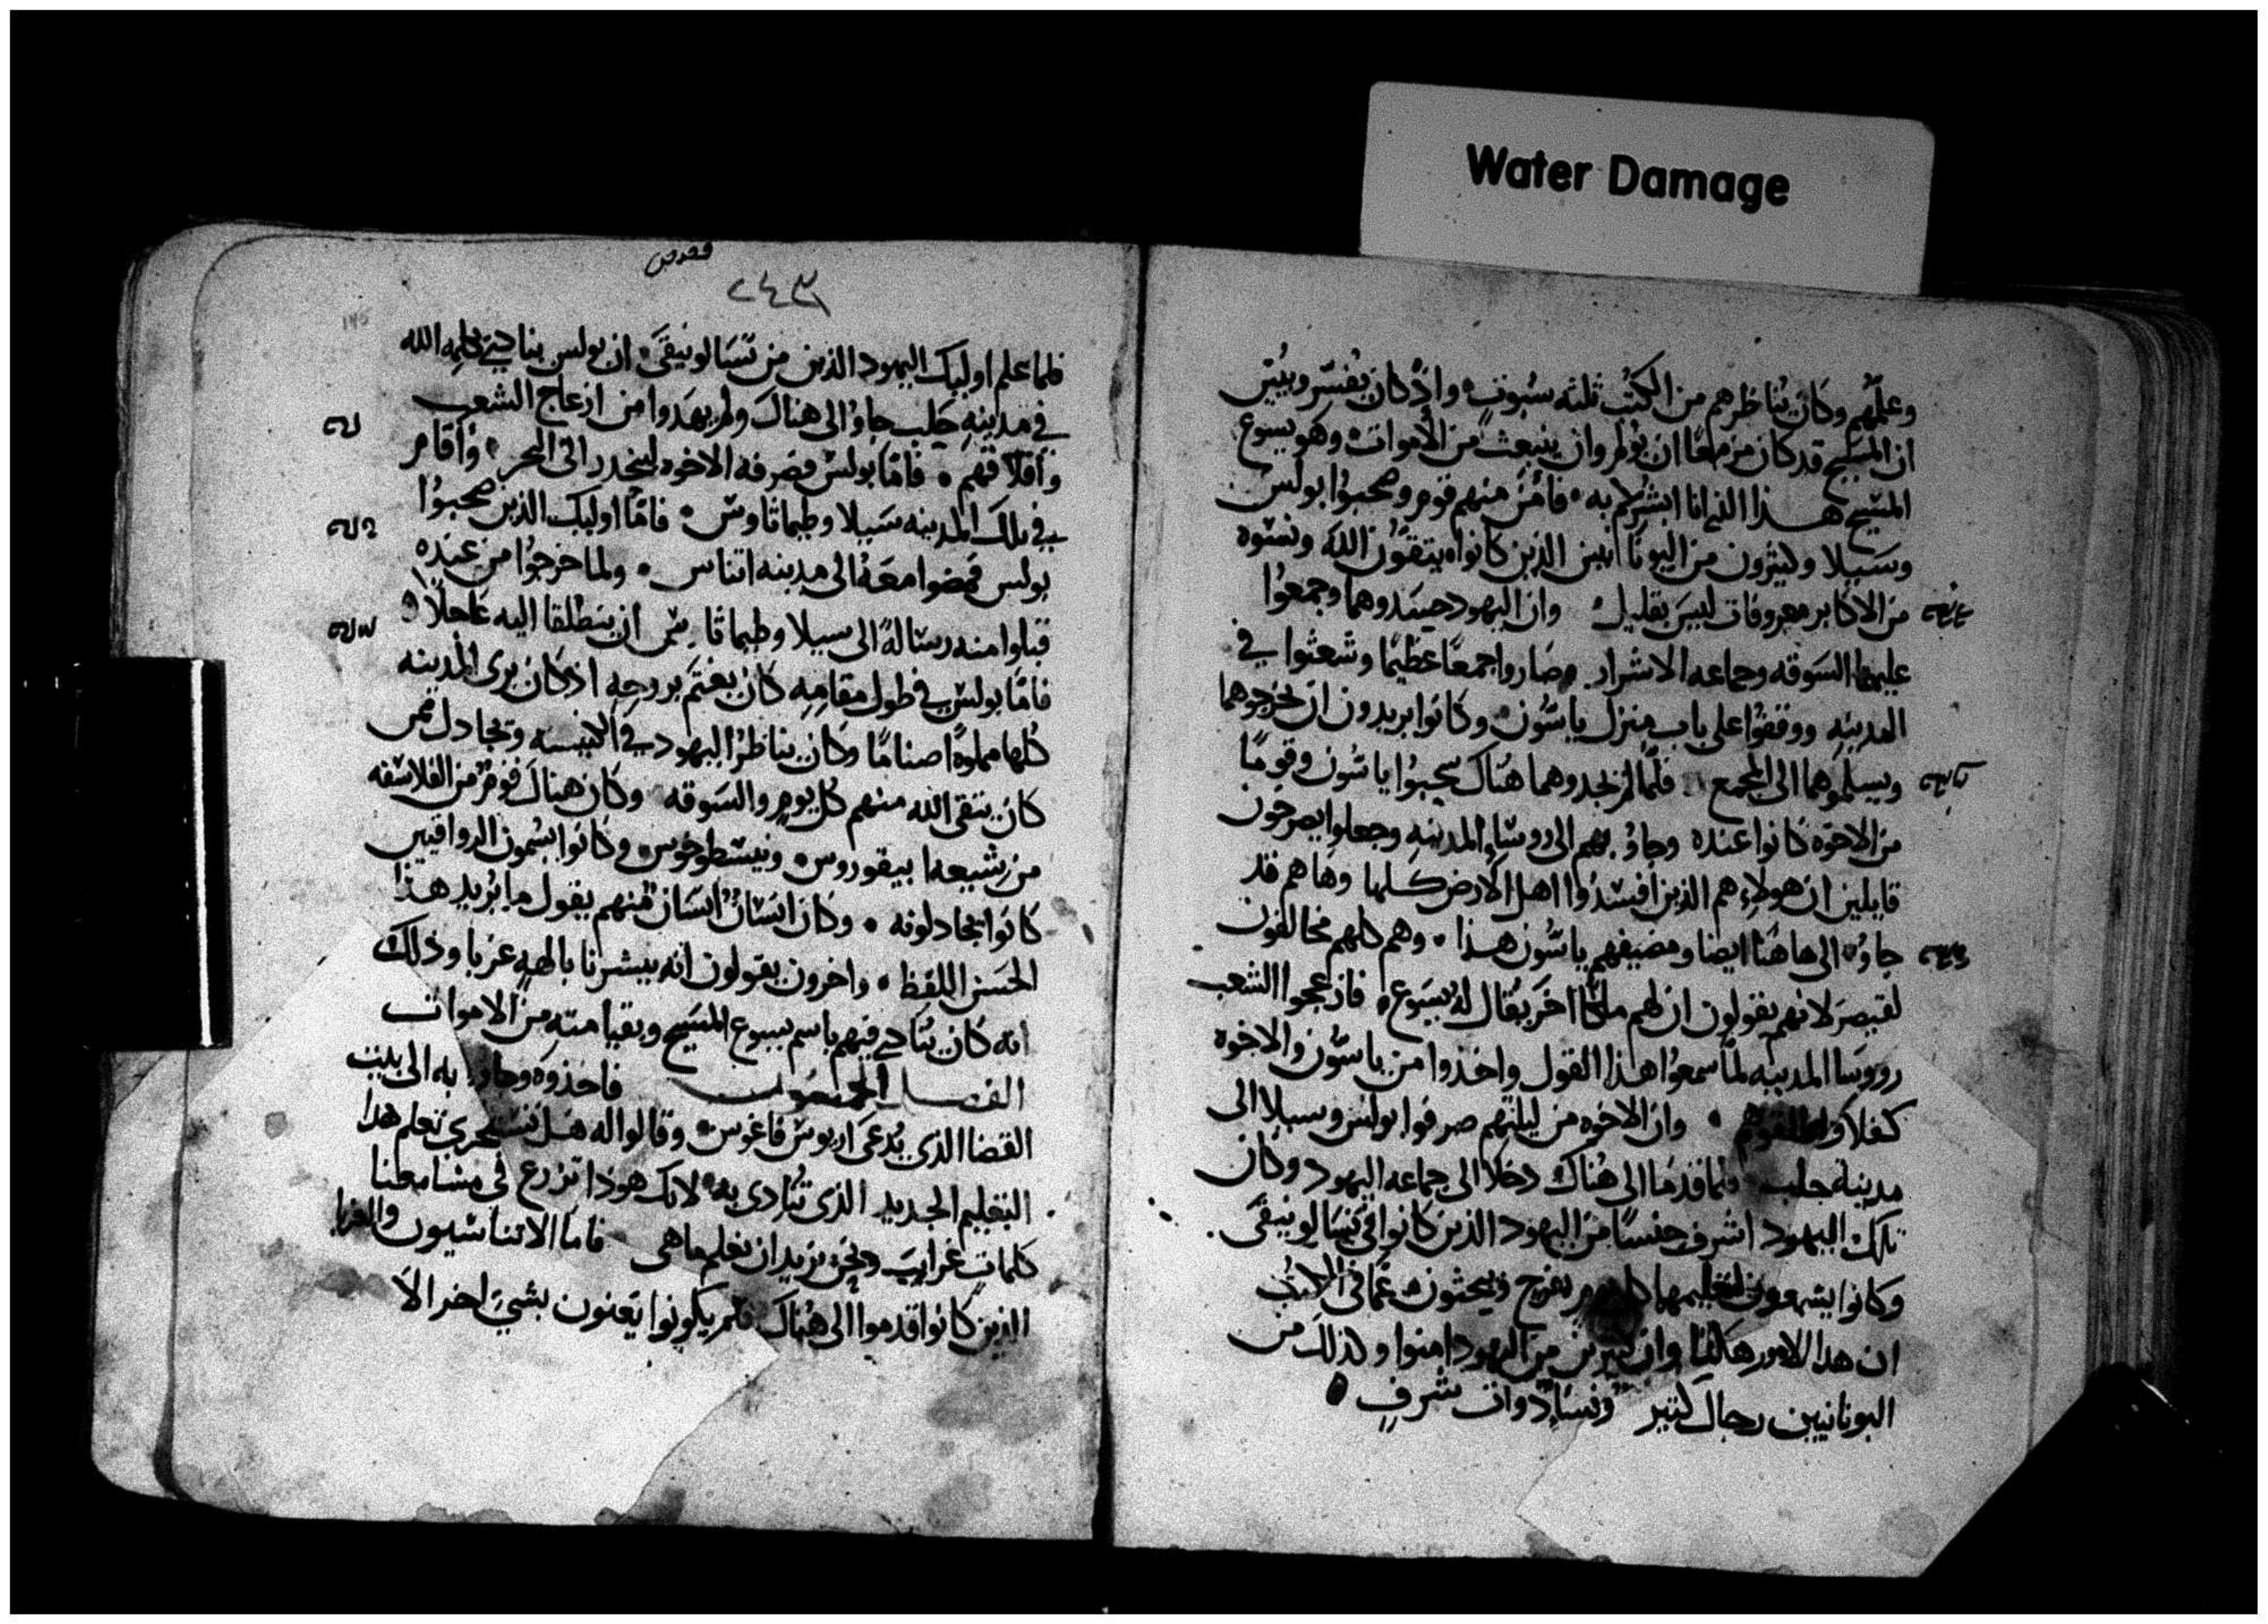 Water Damage
وعلمهم وكان يناظرهم من الكتب ثلثه سبوت واذ كان يفسر ويبين
ان المسيح قد كان مزمعًا ان يولم وان ينبعث من الأموات وهو يسوع
المسيح هذا الذي انا ابشركم به فأمن منهم قوم وصحبوا بولس
وسيلا وكثيرون من اليونانيين الذين كانوا يتقون الله ونسوه
من الاكابر معروفات ليس بقليل وان اليهود حسدوهما وجمعوا
عليهما السوقه وجماعه الاشرار وصاروا جمعًا عظيمًا وشعثوا في
المدينه ووقفوا على باب منزل ياسون وكانوا يريدون ان يخرجوهما
ويسلموهما الى المجمع فلما لم يجدوهما هناك سحبوا ياسون وقومًا
من الاخوه كانوا عنده وجاؤ بهم الى روسا المدينه وجعلوا يصرخون
قايلين ان هولاء هم الذين افسدوا اهل الارض كلها وها هم قد
جاؤ الى هاهنا ايضا ومضيفهم ياسون هذا وهم كلهم مخالفون
لقيصر لانهم يقولون ان لهم ملكًا اخر يقال له يسوع فازعجوا الشعب
رووسا المدينه لما سمعوا هذا القول واخذوا من ياسون والاخوه
كفلا واطلقوهم وان الاخوه من ليلتهم صرفوا بولس وسيلا الى
مدينة حلب فلما قدما الى هناك دخلا الى جماعه اليهود وكان
تلك اليهود اشرف جنسًا من اليهود الذين كانوا في تسالونيقى
وكانوا يسمعون تعليمهما كل يوم بفرح ويبحثون عما في الكتب
ان هذا الامور هكذا وان كثيرين من اليهود امنوا وكذلك من
اليونانيين رجال كثير ونسا ذوات شرف
٢٤٣
فلما علم اوليك اليهود الذين من تسالونيقى ان بولس ينادي بكلمه الله
في مدينه حلب جاؤ الى هناك ولم يهدوا من ازعاج الشعب
واقلاقهم فاما بولس فصرفه الاخوه لينحدر الى البحر واقام
في تلك المدينه سيلا وطيماتاوس فاما اوليك الذين صحبوا
بولس فمضوا معه الى مدينه اتناس ولما خرجوا من عنده
قبلوا منه رسالة الى سيلا وطيماتاوس ان ينطلقا اليه عاجلاً
فاما بولس في طول مقامه كان يغتم بروحه اذ كان يرى المدينه
كلها مملوه اصنامًا وكان يناظر اليهود في الكنيسه ويجادل ممن
كان يتقي الله منهم كل يوم والسوقه وكان هناك قوم من الفلاسفه
من شيعه ابيقوروس ونيسطوخوس وكانوا يسمون الرواقيين
كانوا يجادلونه وكان انسان انسان منهم يقول ما يريد هذا
الحسن اللفظ واخرون يقولون انه يبشرنا بالهه غربا وذلك
انه كان ينادي فيهم باسم يسوع المسيح وبقيامته من الاموات
الفصل فاخذوه وجاوا به الى بيت
القضا الذي يدعى اريوس فاغوس وقالوا له هل نستحري نعلم هذا
التعليم الجديد الذى تنادى به لانك هوذا تزرع في مسامعنا
كلمات غرايب ونحن نريد ان نعلم ما هي فاما الاتناسيون والغربا
الذين كانوا قدموا الى هناك فلم يكونوا يعنون بشي اخر الا